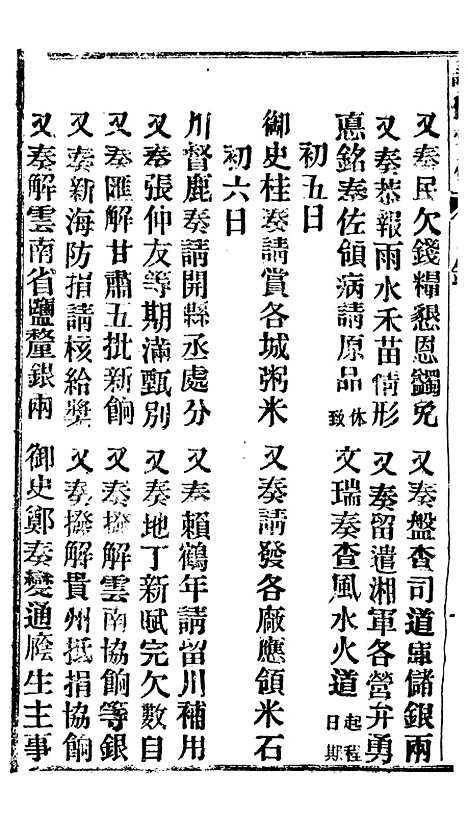 又奏民欠錢糧懇恩蠲免　又奏盤查司道庫儲銀兩
又奏恭報雨水禾苗情形　又奏留遣湘軍各營弁勇
惪銘奏佐領病請原品休致　文瑞奏查風水火道起程日期
初五日
御史桂奏請賞各城粥米　又奏請發各廠應領米石
初六日
川督鹿奏請開縣丞處分　又奏賴鶴年請留川補用
又奏張仲友等期滿甄別　又奏地丁新賦完欠數目
又奏匯解甘肅五批新餉　又奏撥解雲南協餉等銀
又奏新海防捐請核給獎　又奏撥解貴州抵捐協餉
又奏解雲南省鹽釐銀兩　御史鄭奏變通廕生主事